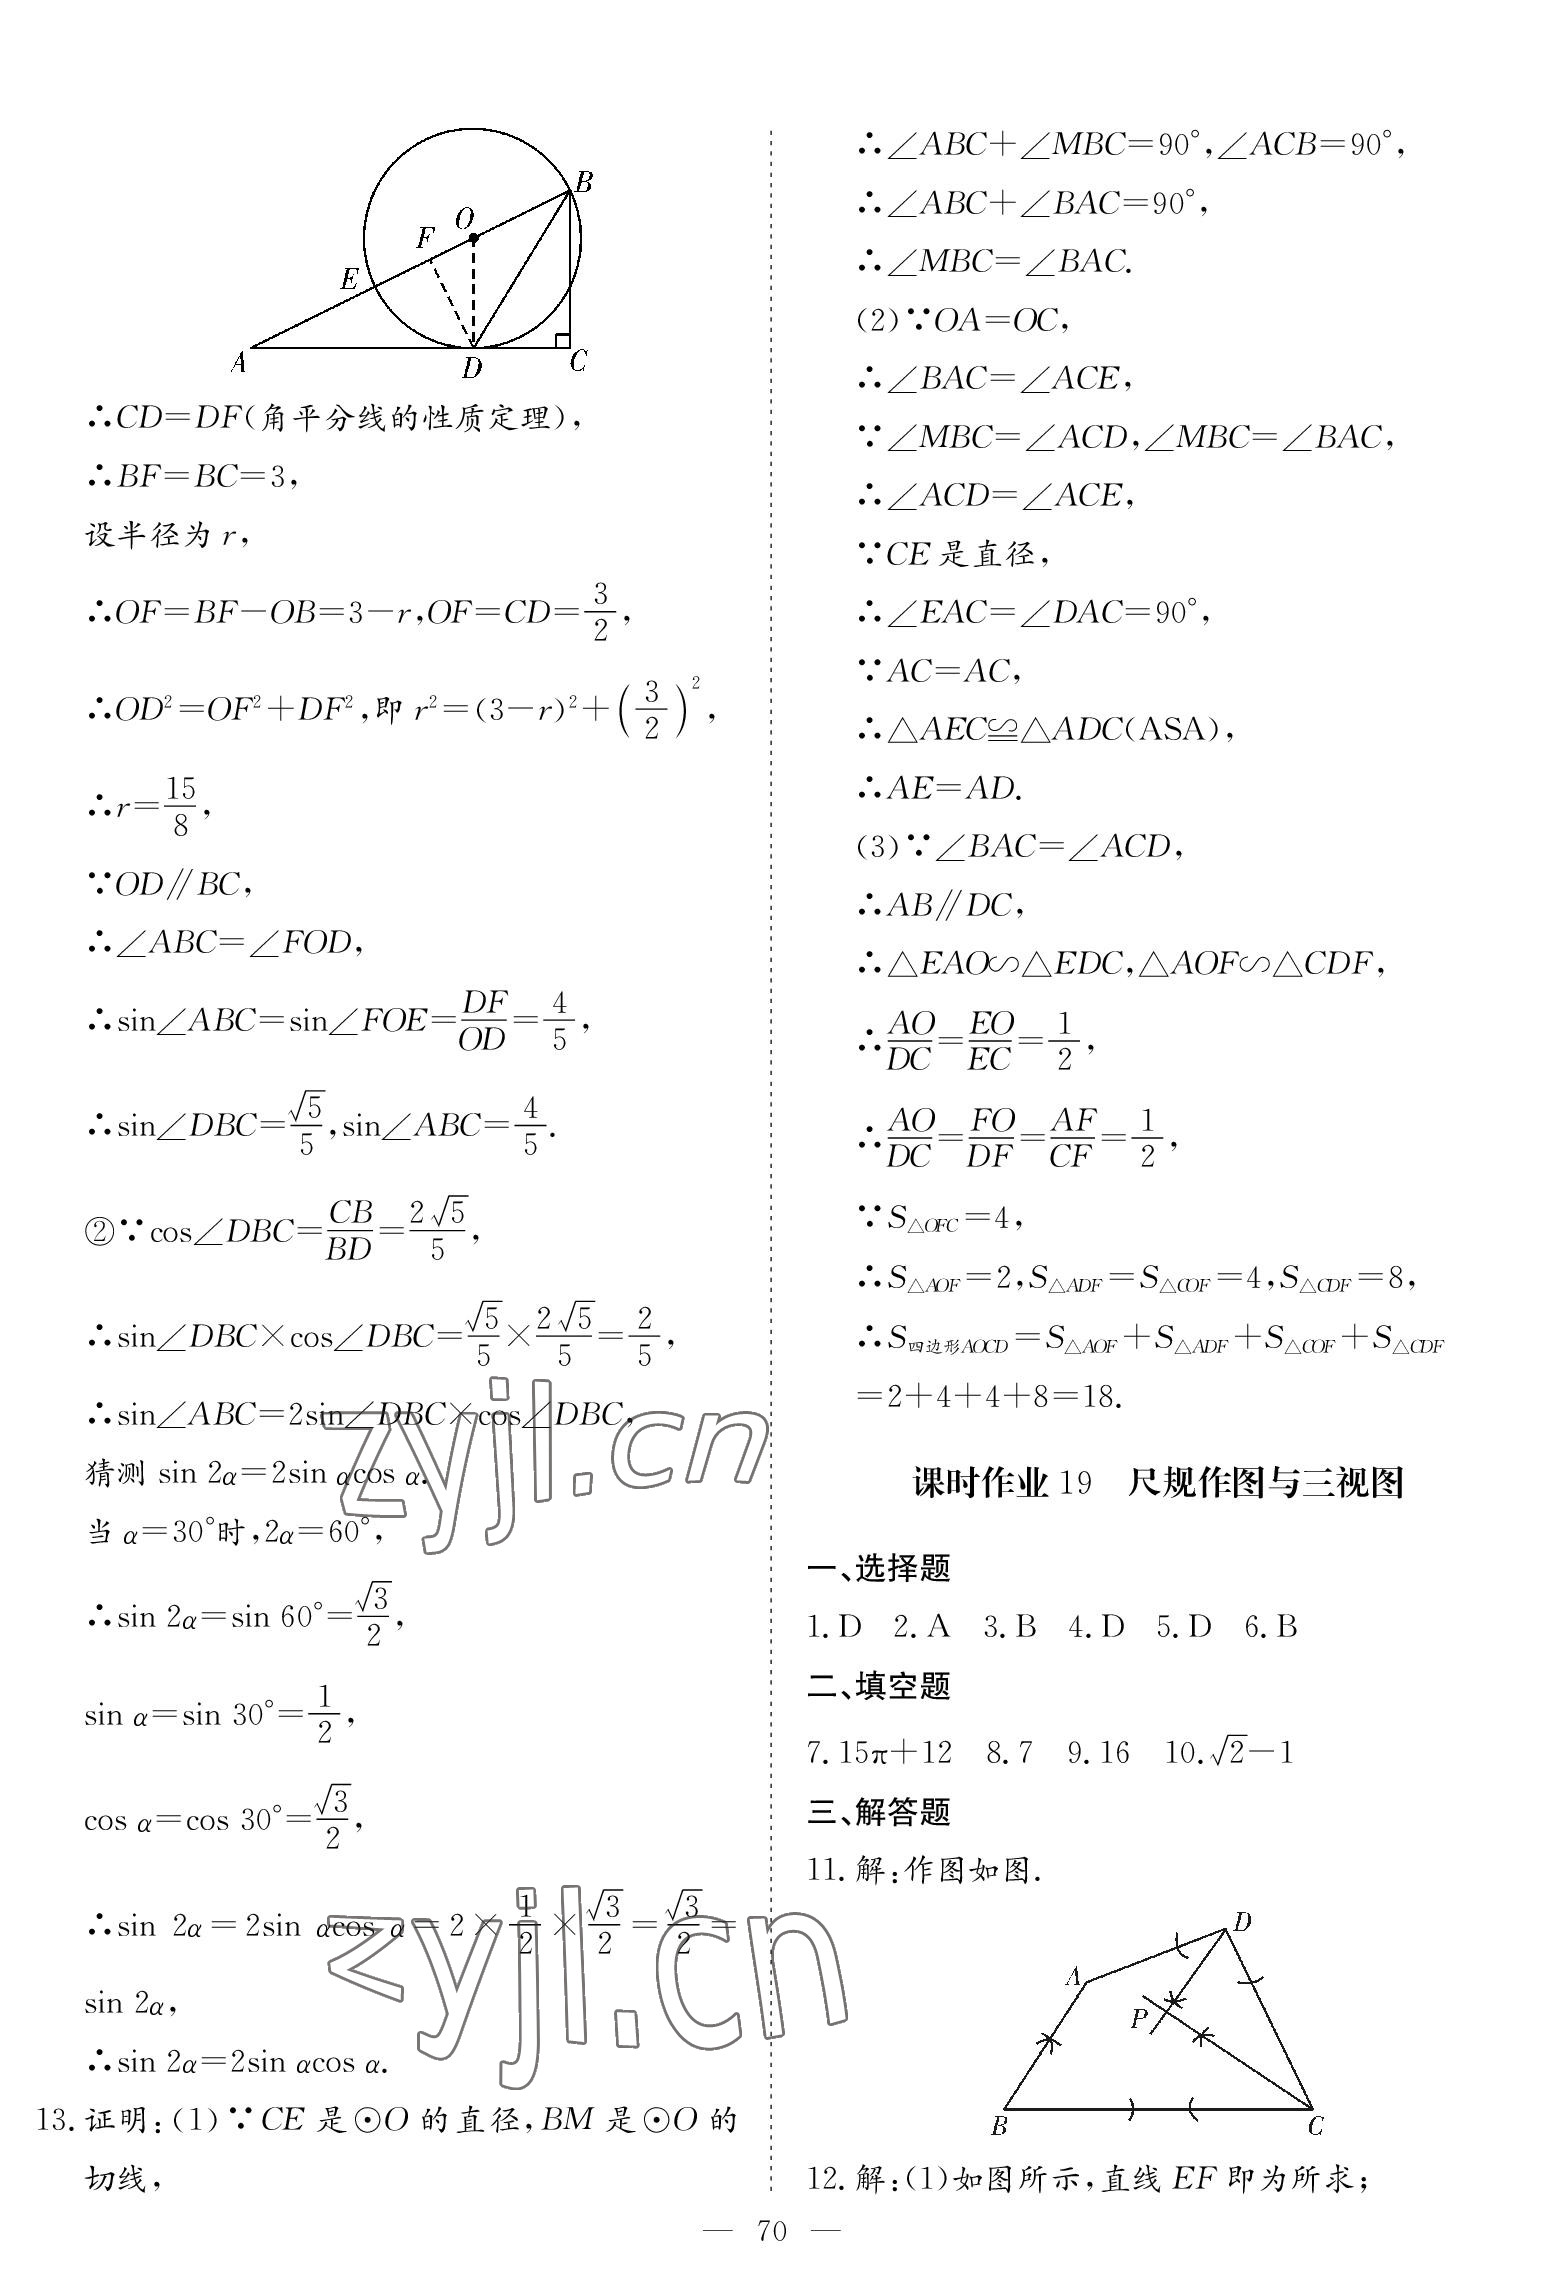 B
O
F
E
A
D
C
∴CD=DF(角平分线的性质定理),
∴BF=BC=3,
设半径为 r,
∴OF=BF-OB=3-r,OF=CD=3/2,
∴OD²=OF²+DF²,即 r²=(3-r)²+(3/2)²,
∴r=15/8,
∵OD∥BC,
∴∠ABC=∠FOD,
∴sin∠ABC=sin∠FOE=DF/OD=4/5,
∴sin∠DBC=√5/5,sin∠ABC=4/5.
②∵cos∠DBC=CB/BD=2√5/5,
∴sin∠DBC×cos∠DBC=√5/5×2√5/5=2/5,
∴sin∠ABC=2sin∠DBC×cos∠DBC,
猜测 sin 2α=2sin αcos α.
当 α=30°时,2α=60°,
∴sin 2α=sin 60°=√3/2,
sin α=sin 30°=1/2,
cos α=cos 30°=√3/2,
∴sin 2α=2sin αcos α=2×1/2×√3/2=√3/2=
sin 2α,
∴sin 2α=2sin αcos α.
13.证明:(1)∵CE 是⊙O 的直径,BM 是⊙O 的
切线,
∴∠ABC+∠MBC=90°,∠ACB=90°,
∴∠ABC+∠BAC=90°,
∴∠MBC=∠BAC.
(2)∵OA=OC,
∴∠BAC=∠ACE,
∵∠MBC=∠ACD,∠MBC=∠BAC,
∴∠ACD=∠ACE,
∵CE 是直径,
∴∠EAC=∠DAC=90°,
∵AC=AC,
∴△AEC≌△ADC(ASA),
∴AE=AD.
(3)∵∠BAC=∠ACD,
∴AB∥DC,
∴△EAO∽△EDC,△AOF∽△CDF,
∴AO/DC=EO/EC=1/2,
∴AO/DC=FO/DF=AF/CF=1/2,
∵S△OFC=4,
∴S△AOF=2,S△ADF=S△COF=4,S△CDF=8,
∴S四边形AOCD=S△AOF+S△ADF+S△COF+S△CDF
=2+4+4+8=18.
课时作业 19 尺规作图与三视图
一、选择题
1.D 2.A 3.B 4.D 5.D 6.B
二、填空题
7.15π+12 8.7 9.16 10.√2-1
三、解答题
11.解:作图如图.
D
A
P
B
C
12.解:(1)如图所示,直线 EF 即为所求;
— 70 —
zyjl.cn
zyjl.cn